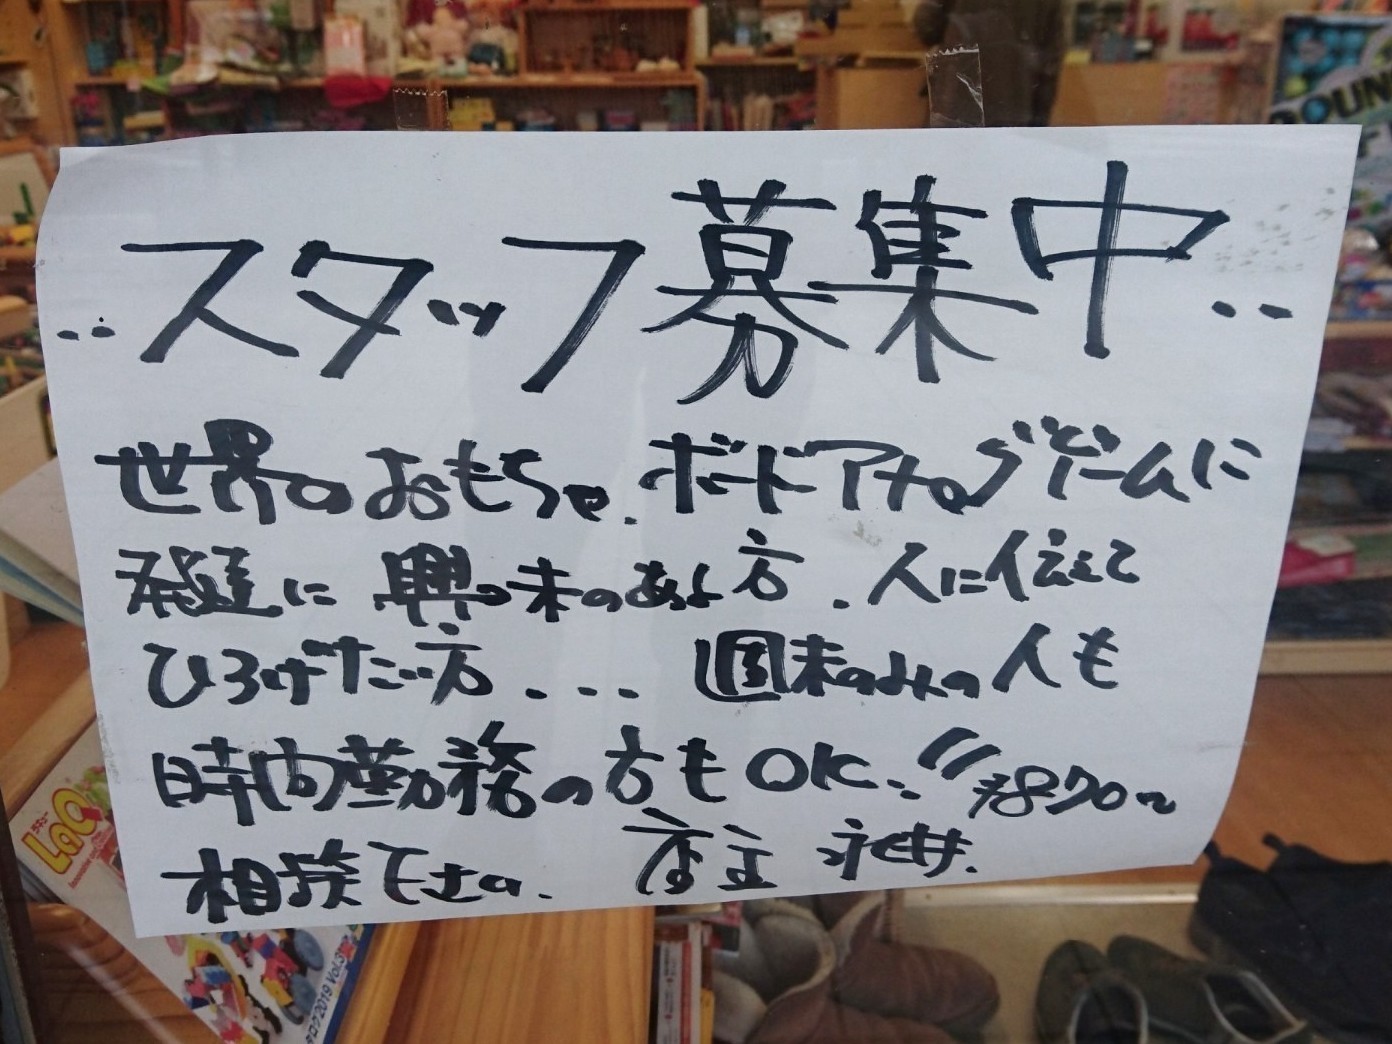 ‥スタッフ募集中‥
世界のおもちゃ.ボードアナログゲームに
発達に興味のある方.人に伝えて
ひろげたい方.... 週末のみの人も
時間勤務の方もOK!! ¥870〜
相談下さい. 店主 永井.
LaQ
2019 Vol.3
OUN